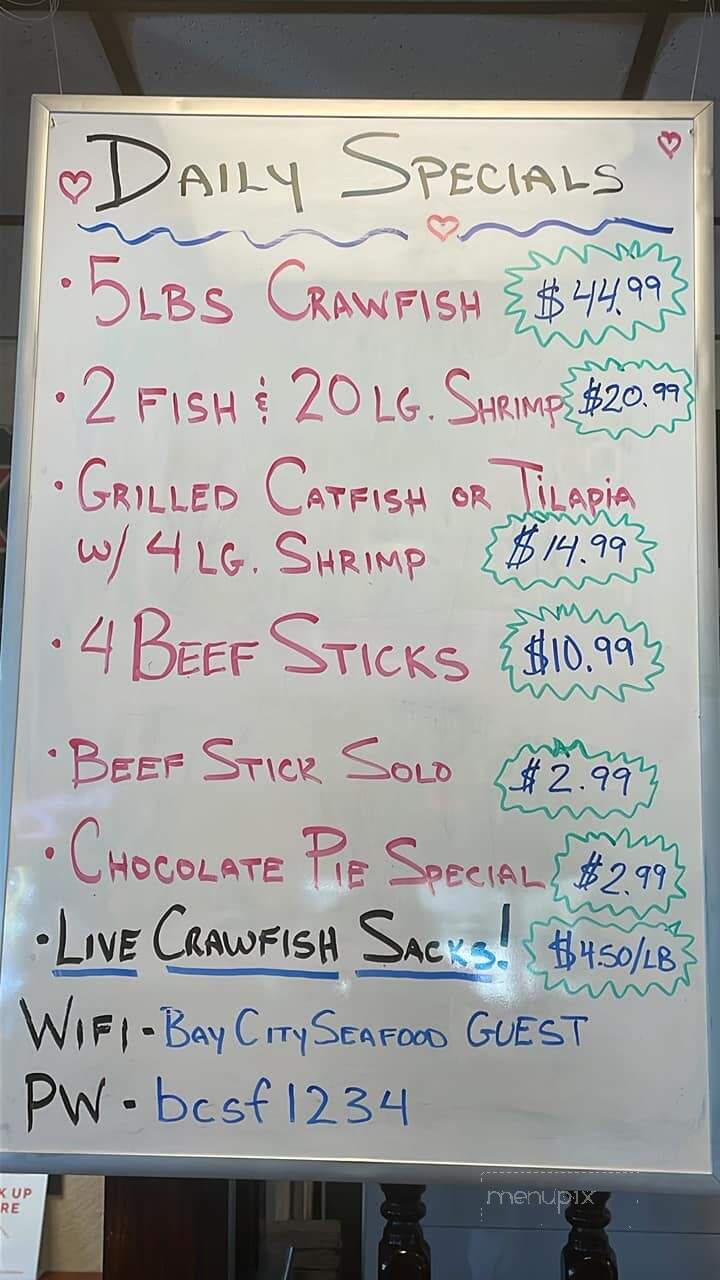 DAILY SPECIALS
• 5 LBS CRAWFISH $44.99
• 2 FISH & 20 LG. SHRIMP $20.99
• GRILLED CATFISH OR TILAPIA
W/ 4 LG. SHRIMP $14.99
• 4 BEEF STICKS $10.99
• BEEF STICK SOLO $2.99
• CHOCOLATE PIE SPECIAL $2.99
• LIVE CRAWFISH SACKS! $4.50/LB
WIFI - BAY CITY SEAFOOD GUEST
PW - bcsf1234
K UP
RE
menupix